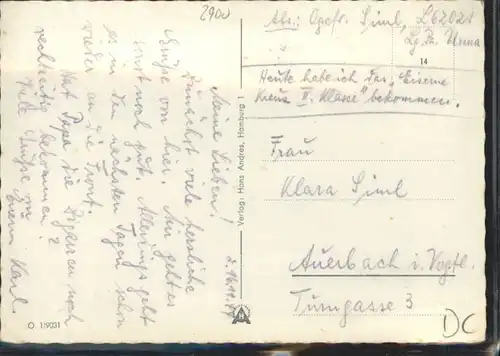 2900
Abs.: Ogefr. Siml, L62021
Lg. Pa. Unna
14
Heute habe ich das "Eiserne
Kreuz II. Klasse" bekommen.
Frau
Klara Siml
Auerbach i. Vogtl.
Turngasse 3
DC
Verlag: Hans Andres, Hamburg 1
16.11.44
Meine Lieben!
Zunächst viele herzliche
Grüße von hier. Mir geht es
sonst noch gut. Allerdings geht
es in den nächsten Tagen schon
wieder an die Front.
Hat Papa die Zigarren noch
rechtzeitig bekommen?
Viele Grüße von
Eurem Karl.
O. 1/9031